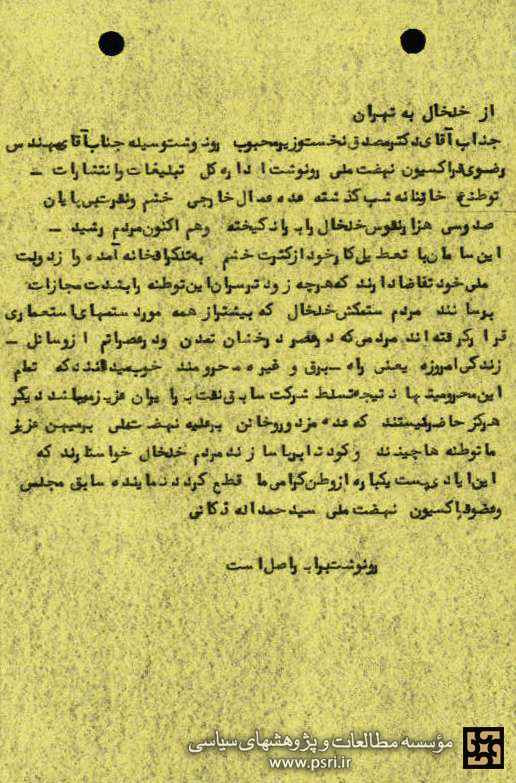 از خلخال به تهران
جناب آقای دکتر مصدق نخست وزیر محبوب رونوشت وسیله جناب آقای مهندس
رضوی فراکسیون نهضت ملی رونوشت اداره کل تبلیغات و انتشارات –
توطئه خائنانه شب گذشته عده عمال خارجی خشم و نفرت بی پایان
صد و سی هزار نفوس خلخال را برانگیخته وهم اکنون مردم رشید –
این سامان با تعطیل کار خود از کثرت خشم به تلگرافخانه آمده و از دولت
ملی خود تقاضا دارند که هرچه زودتر سران این توطئه را بشدت مجازات
برسانند مردم ستمکش خلخال که بیشتر از همه مورد ستمهای استعماری
قرار گرفته اند مردمی که در عصر درخشان تمدن و در عصر اتم از وسائل –
زندگی امروزه یعنی راه – برق و غیره محرومند خوب میدانند که تمام
این محرومیتها نتیجه تسلط شرکت سابق نفت بر ایران عزیز میباشد دیگر
هرگز حاضر نیستند که عده مزدور و خائن برعلیه نهضت ملی برمیهن عزیز
ما توطئه ها چینند و کودتا برپا سازند مردم خلخال خواستارند که
این ایادی پست یکباره از وطن گرامی ما قطع گردد نماینده سابق مجلس
وعضو فراکسیون نهضت ملی سید حمداله ذکائی
رونوشت برابر اصل است
مؤسسه مطالعات و پژوهشهای سیاسی
www.psri.ir